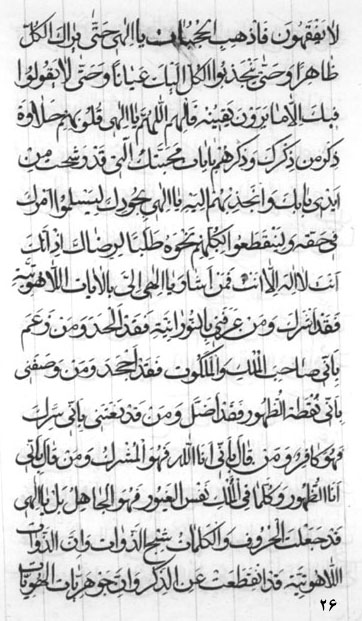 لا یفقهون فاذهب الحجبات یا الهی حتی یراك الكل
ظاهرا وحتی ینجذبوا الكل الیك عیانا وحتی لا یقولوا
فیك الا ما یرون بعینه فالهم اللهم یا الهی قلوبهم حلاوة
ذكر من ذكرك وذكرهم بایات محبتك التی قد رشحت من
ایدی بابك وانجذبهم الیه یا الهی بجودك لیسئلوا امرك
فی حقه ولینقطعوا بكلهم نحوه طلبا لرضاك اذ انك
انت لا اله الا انت فمن اشار یا الهی الی بالایات اللاهوتیه
فقد اشرك ومن عرفنی بالنورانیة فقد الحد ومن زعم
بانی صاحب الملك والملكوت فقد اجحد ومن وصفنی
بانی نقطة الظهور فقد اضل ومن قد دعنی بانی سرك
فهو كافر ومن قال بانی انا الله فهو المشرك ومن قال بانی
انا الظهور وكلما فی الملك نفس الغیور فهو الجاهل بل یا الهی
قد جعلت الحروف والكلمات شبح الذوات وان الذوات
اللاهوتیه قد انقطعت عن الذكر وان جوهریات الهویات
۲۶